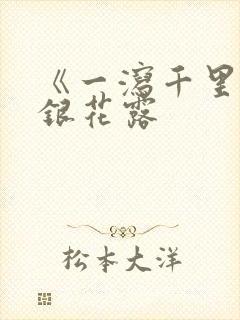 《一瀉千里
銀花露
松本大洋